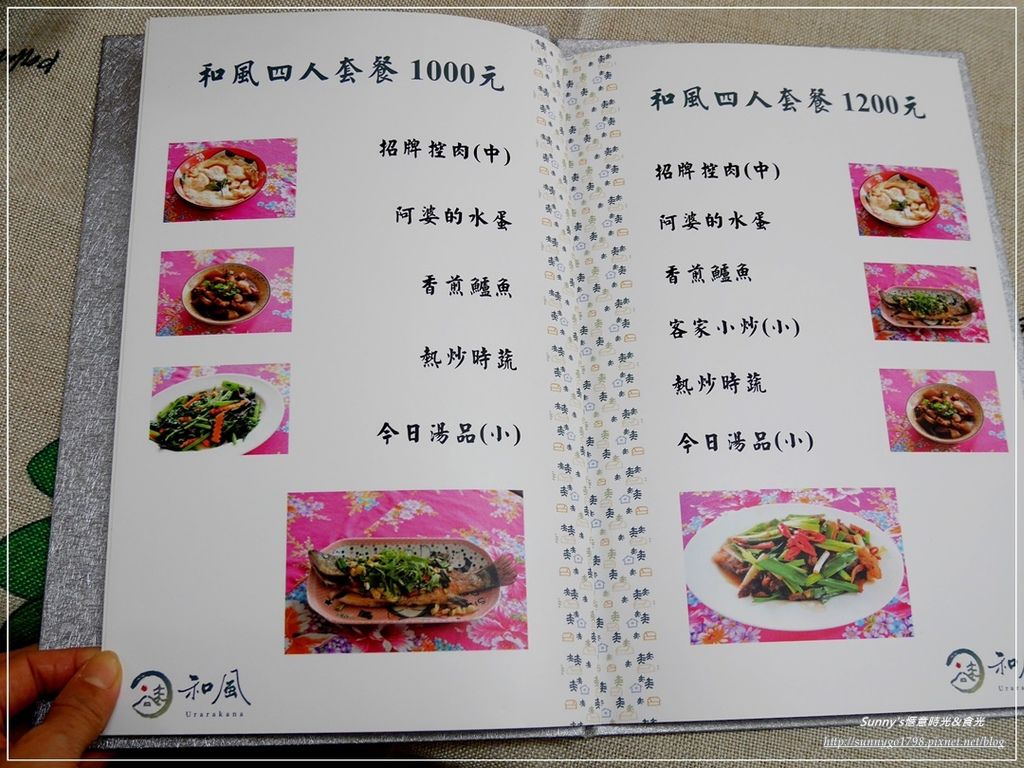 和風四人套餐 1000元
招牌控肉(中)
阿婆的水蛋
香煎鱸魚
熱炒時蔬
今日湯品(小)
和風
Urarakana
和風四人套餐 1200元
招牌控肉(中)
阿婆的水蛋
香煎鱸魚
客家小炒(小)
熱炒時蔬
今日湯品(小)
和
Sunny's愜意時光&食光
http://sunnygo1798.pixnet.net/blog